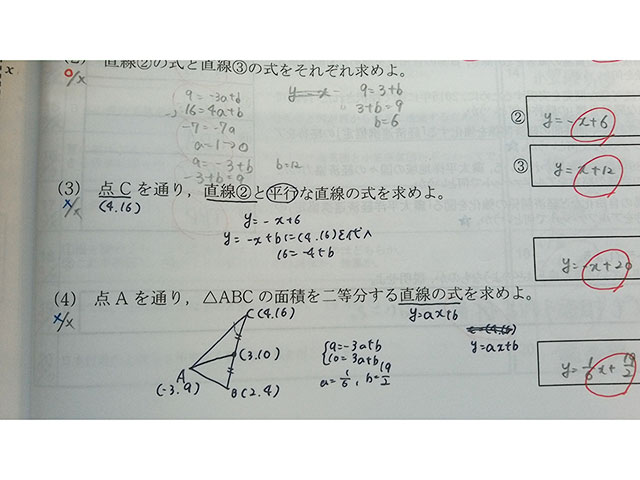 直線②の式と直線③の式をそれぞれ求めよ。
9=-3a+b
16=4a+b
-7=-7a
a=1
9=-3+b
-3+b=9
b=12
9=3+b
3+b=9
b=6
② y=-x+6
③ y=x+12
(3) 点Cを通り，直線②と平行な直線の式を求めよ。
(4.16)
y=-x+6
y=-x+bに(4.16)を代入
16=-4+b
y=-x+20
(4) 点Aを通り，△ABCの面積を二等分する直線の式を求めよ。
C(4.16)
(3.10)
A
(-3.9)
B(2.4)
9=-3a+b
10=3a+b
a=1/6, b=19/2
y=ax+b
y=ax+b
y=1/6x+19/2
x